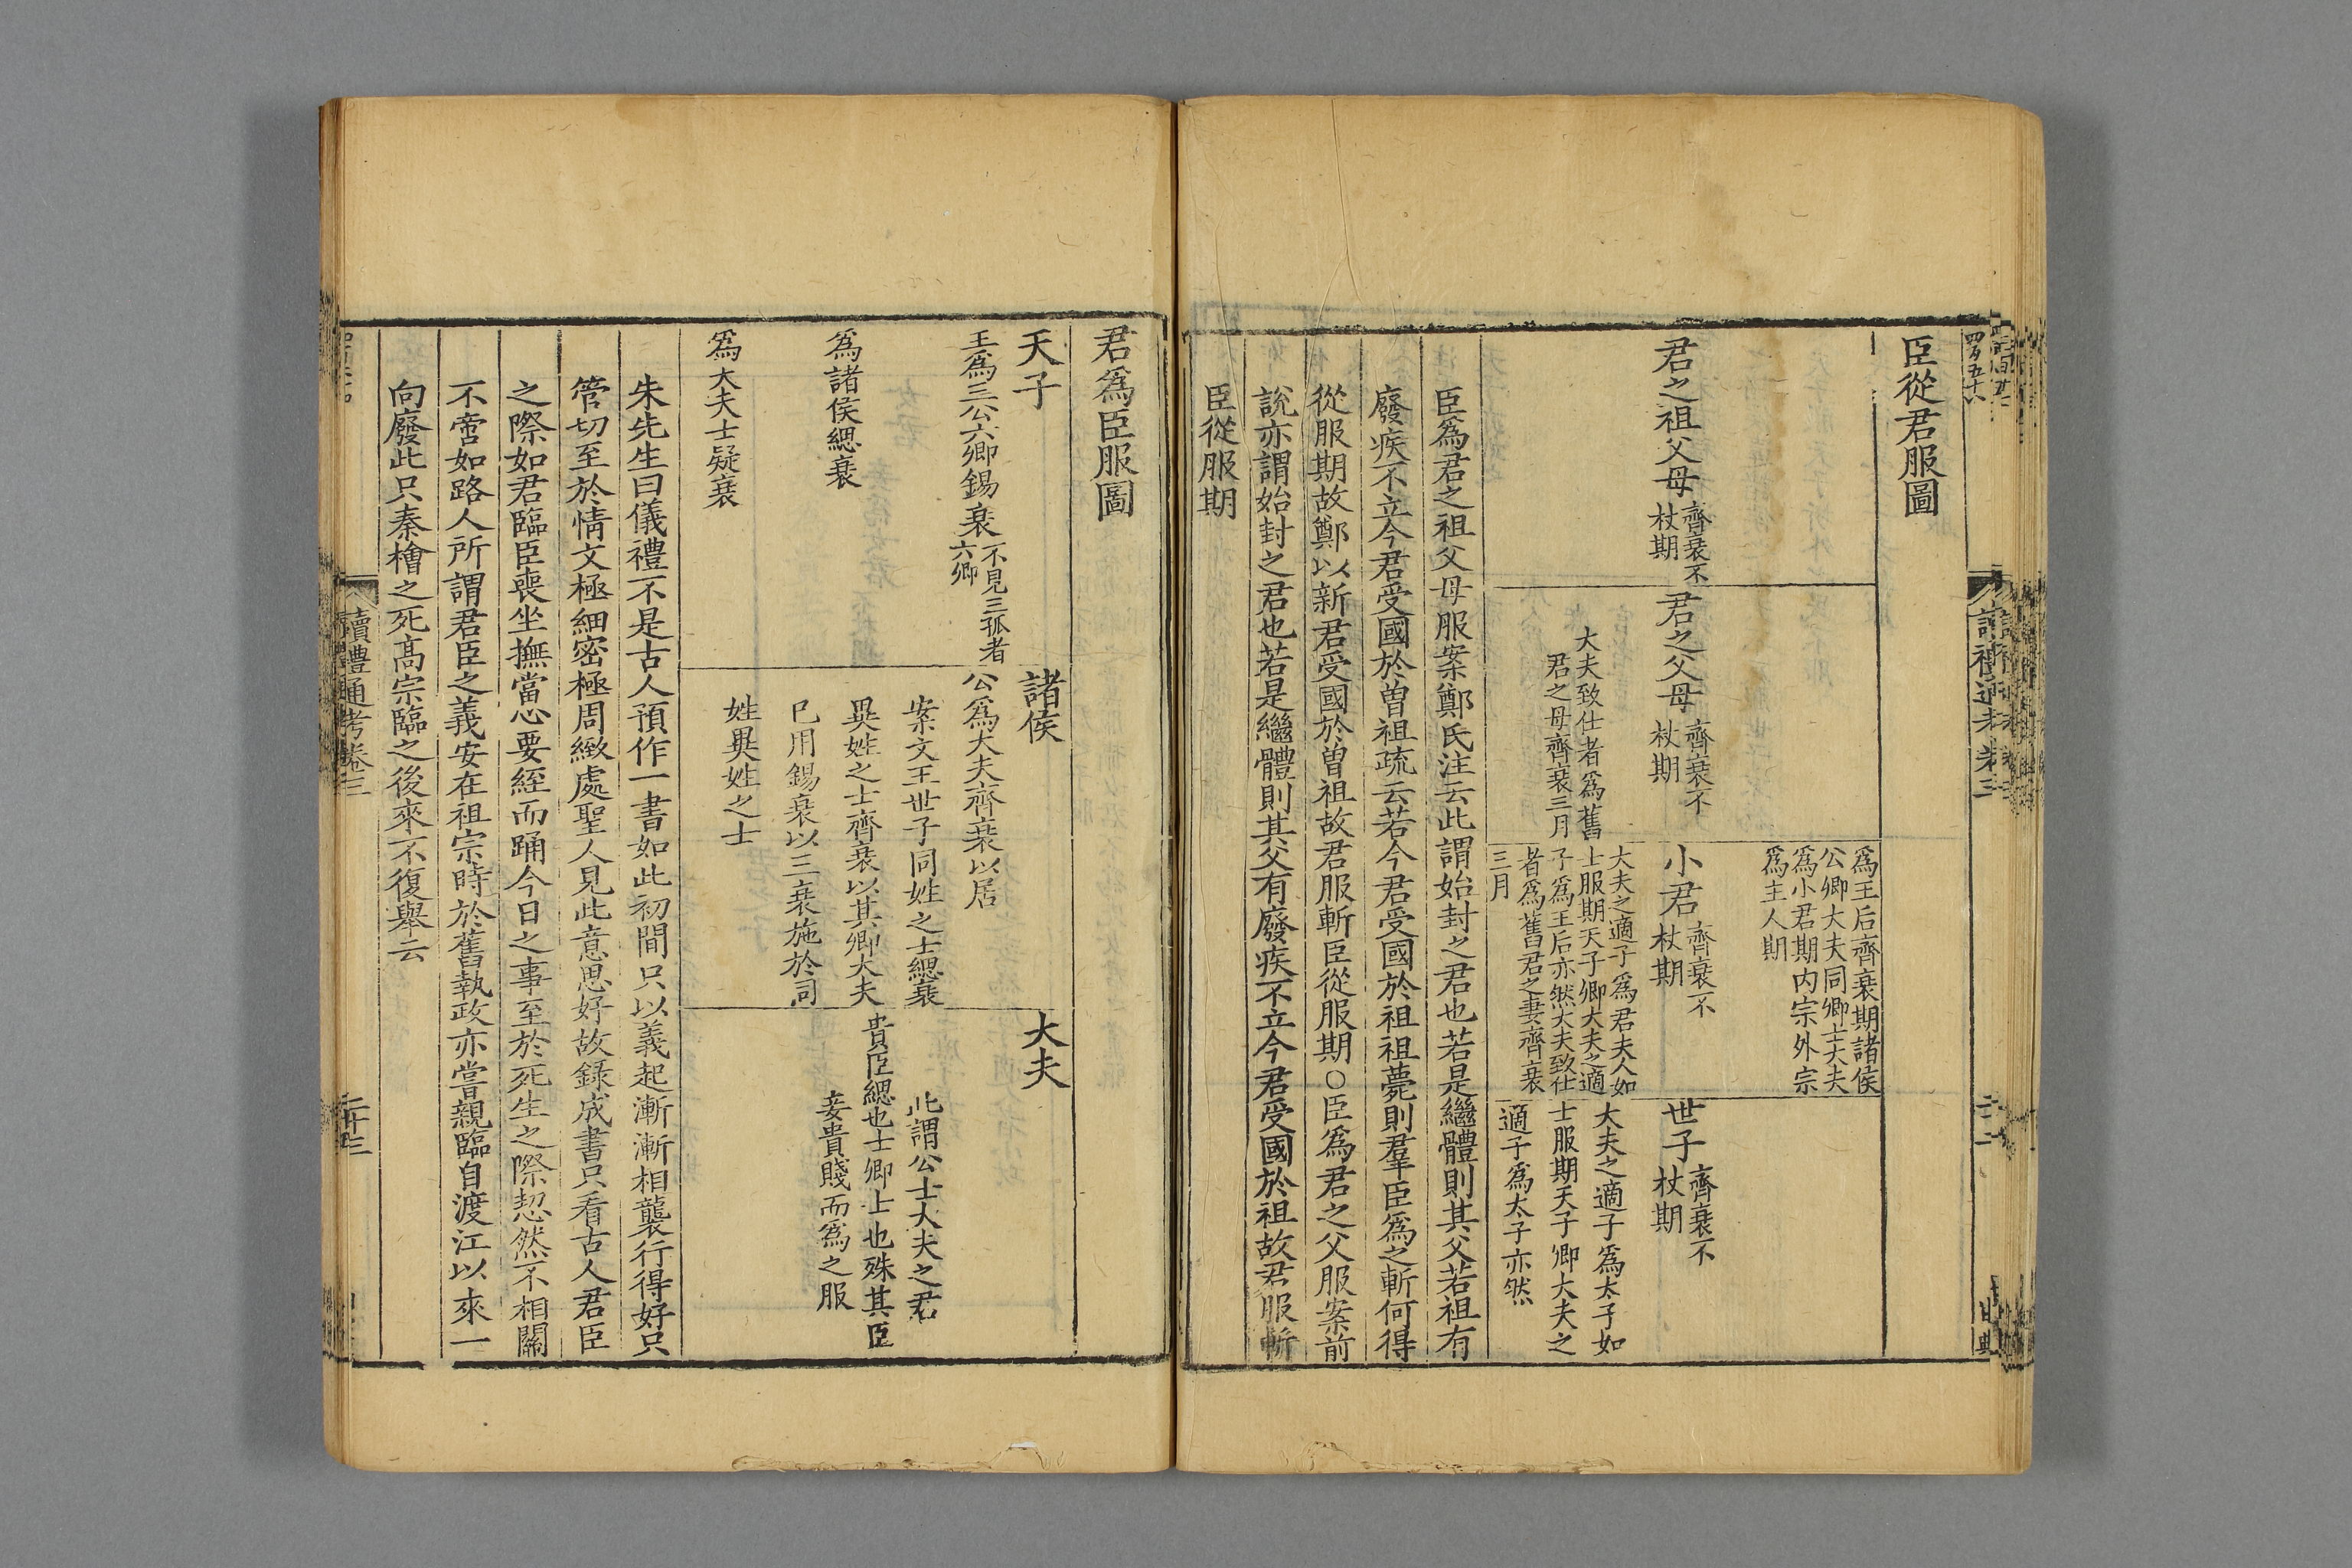 臣從君服圖
君之祖父母
齊衰不
杖期
君之父母
齊衰不
杖期
大夫致仕者爲舊
君之母齊衰三月
爲王后齊衰期諸侯
公卿大夫同卿士大夫
爲小君期内宗外宗
爲主人期
小君
齊衰不
杖期
大夫之適子爲君夫人如
士服期天子卿大夫之適
子爲王后亦然大夫致仕
者爲舊君之妻齊衰
三月
世子
齊衰不
杖期
大夫之適子爲太子如
士服期天子卿大夫之
適子爲太子亦然
臣爲君之祖父母服案鄭氏注云此謂始封之君也若是繼體則其父若祖有
廢疾不立今君受國於曽祖疏云若今君受國於祖祖薨則羣臣爲之斬何得
從服期故鄭以新君受國於曽祖故君服斬臣從服期○臣爲君之父服案前
說亦謂始封之君也若是繼體則其父有廢疾不立今君受國於祖故君服斬
臣從服期
君爲臣服圖
天子
王爲三公六卿錫衰
不見三孤者
六卿
爲諸侯緦衰
爲大夫士疑衰
諸侯
公爲大夫齊衰以居
案文王世子同姓之士緦衰
異姓之士齊衰以其卿大夫
已用錫衰以三衰施於同
姓異姓之士
大夫
此謂公士大夫之君
貴臣緦也士卿上也殊其臣
妾貴賤而爲之服
朱先生曰儀禮不是古人預作一書如此初間只以義起漸漸相襲行得好只
管切至於情文極細密極周緻處聖人見此意思好故録成書只看古人君臣
之際如君臨臣喪坐撫當心要絰而踊今日之事至於死生之際恝然不相關
不啻如路人所謂君臣之義安在祖宗時於舊執政亦嘗親臨自渡江以來一
向廢此只秦檜之死高宗臨之後來不復舉云
讀禮通考卷三